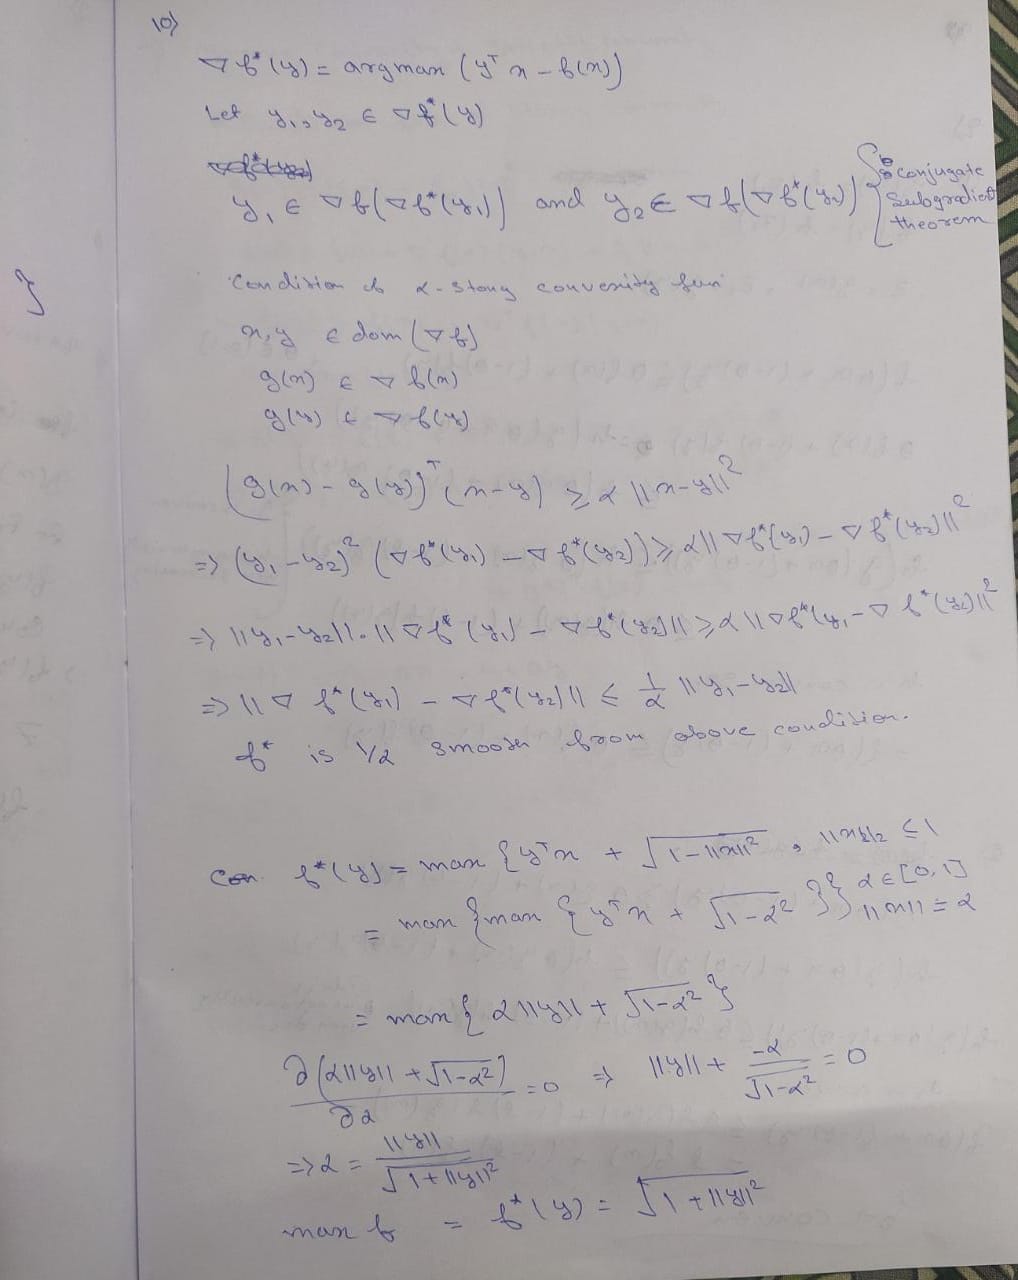 10)
∇f*(y) = argmax (yᵀx - f(x))
Let y₁, y₂ ∈ ∇f*(y)
y₁ ∈ ∇f(∇f*(y₁)) and y₂ ∈ ∇f(∇f*(y₂)) { conjugate
subgradient
theorem
}
Condition of α-stong convexity fun
x, y ∈ dom(∇f)
g(x) ∈ ∇f(x)
g(y) ∈ ∇f(y)
(g(x) - g(y))ᵀ (x-y) ≥ α ||x-y||²
⇒ (y₁ - y₂)² (∇f*(y₁) - ∇f*(y₂)) ≥ α||∇f*(y₁) - ∇f*(y₂)||²
⇒ ||y₁-y₂|| . ||∇f*(y₁) - ∇f*(y₂)|| ≥ α ||∇f*(y₁ - ∇f*(y₂)||²
⇒ ||∇f*(y₁) - ∇f*(y₂)|| ≤ 1/α ||y₁-y₂||
f* is 1/α smooth from above condition.
Con f*(y) = max {yᵀx + √1-||x||² , ||x||₂ ≤ 1
= max {max {yᵀx + √1-α² }} α ∈ [0,1] ||x|| = α
= max { α||y|| + √1-α² }
∂(α||y|| + √1-α²)/∂α = 0 ⇒ ||y|| + -α/√1-α² = 0
⇒ α = ||y||/√1+||y||²
max f = f*(y) = √1+||y||²